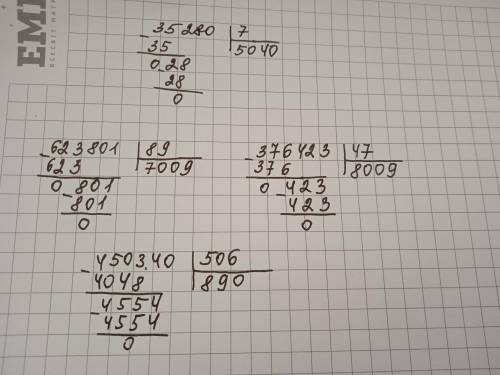 - 35280 | 7
35 | 5040
0 28
- 28
0
- 623801 | 89
623 | 7009
0 801
- 801
0
- 376423 | 47
376 | 8009
0 423
- 423
0
- 4503.40 | 506
4048 | 890
4554
- 4554
0